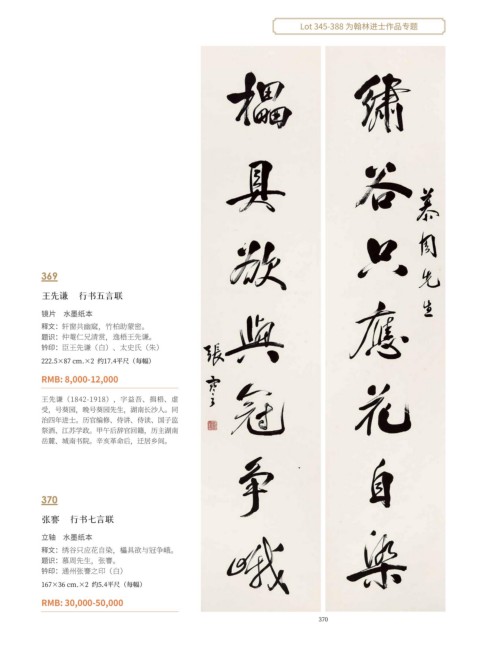 Lot 345-388 为翰林进士作品专题
繡谷只應花自染
慕周先生
櫑具欲與冠争峨
張謇
369
王先谦 行书五言联
镜片 水墨纸本
释文：轩窗共幽寂，竹柏助蒙密。
题识：仲骞仁兄清赏，逸梧王先谦。
钤印：臣王先谦（白）、太史氏（朱）
222.5×87 cm.×2 约17.4平尺（每幅）
RMB: 8,000-12,000
王先谦（1842-1918），字益吾，鹤梧，虚
受，号葵园，晚号葵园先生，湖南长沙人。同
治四年进士。历官编修、侍讲、侍读、国子监
祭酒，江苏学政。甲午后辞官回籍，历主湖南
岳麓、城南书院。辛亥革命后，迁居乡间。
370
张謇 行书七言联
立轴 水墨纸本
释文：绣谷只应花自染，櫑具欲与冠争峨。
题识：慕周先生，张謇。
钤印：通州张謇之印（白）
167×36 cm.×2 约5.4平尺（每幅）
RMB: 30,000-50,000
370